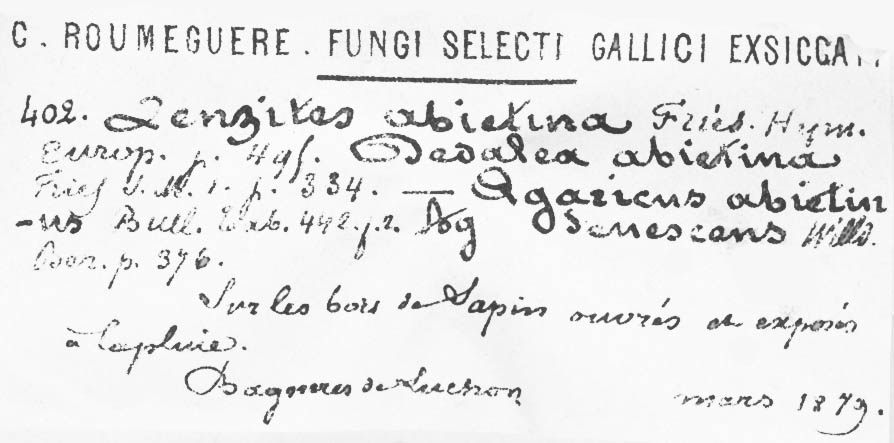 C. ROUMEGUERE. FUNGI SELECTI GALLICI EXSICCA
402. Lenzites abietina Fries. Hym.
Europ. p. 495. Dedalea abietina
Fries S. M. 1. p. 334. — Agaricus abietin
-us Bull. tab. 442. f. 2. Ag senescens Willd.
Ber. p. 376.
Sur les bois de Sapin ouvrés et exposés
à la pluie.
Bagneres de Luchon mars 1879.